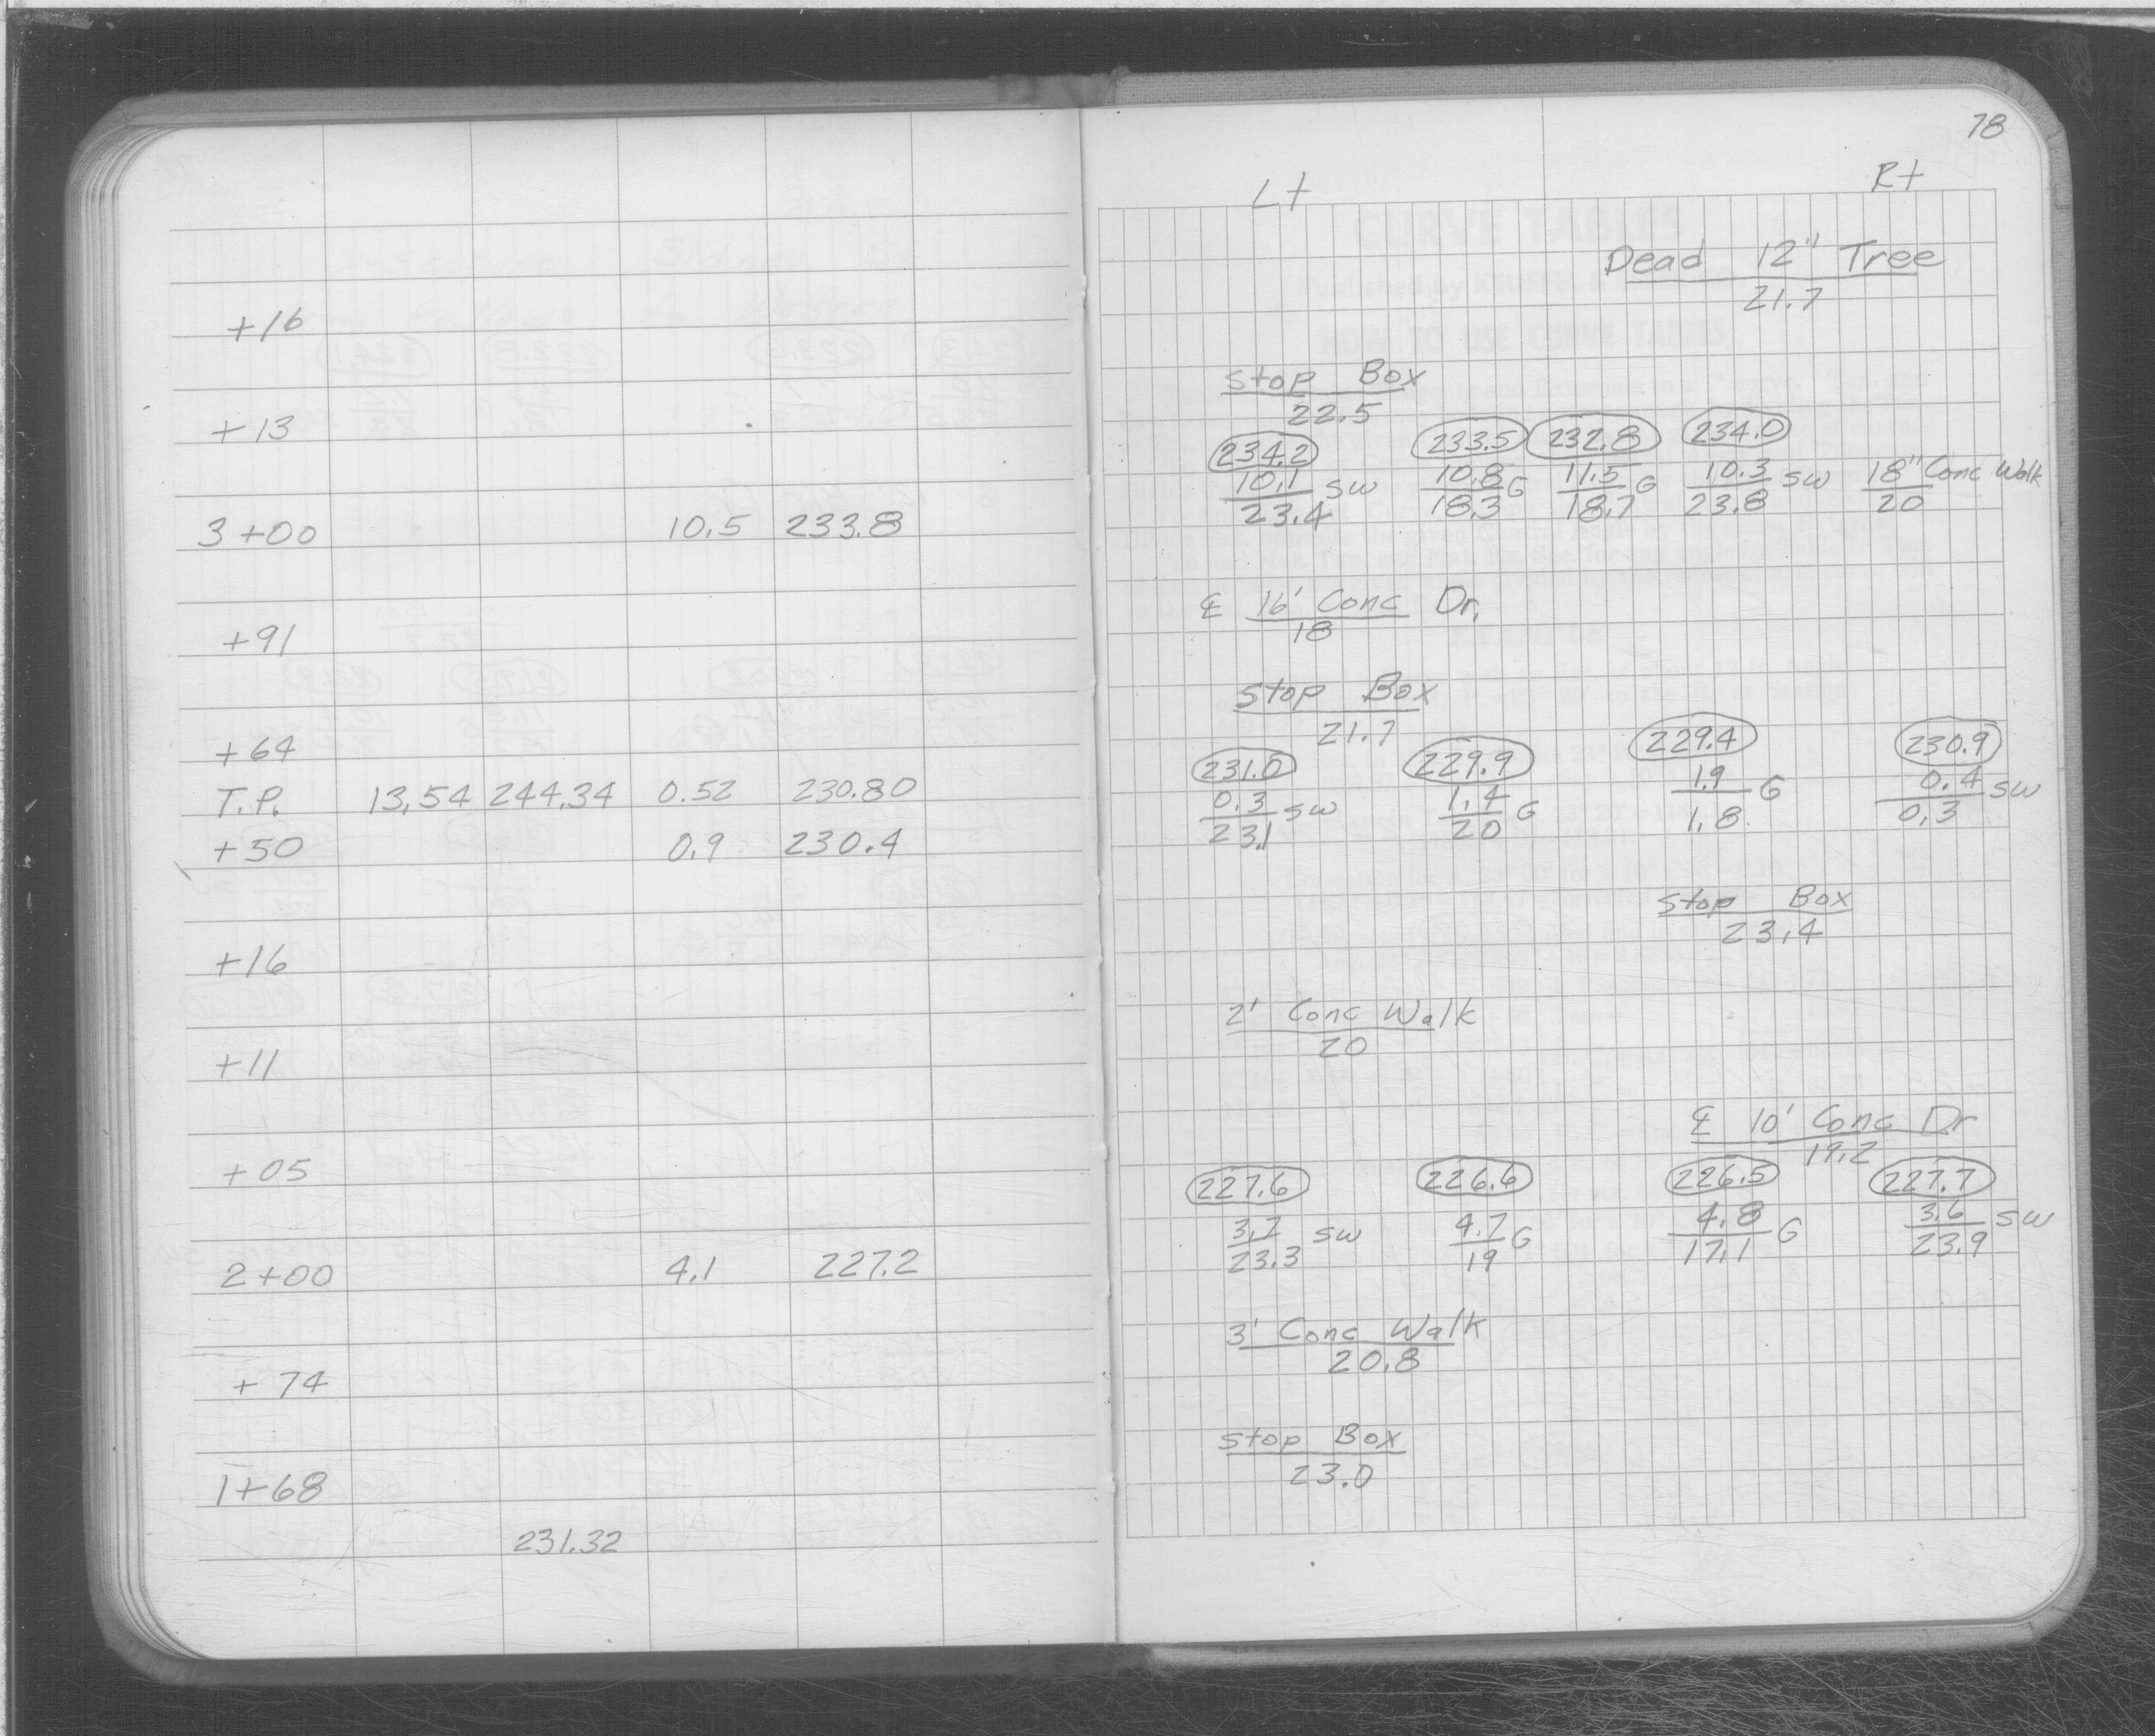 78
Lt Rt
Dead 12" Tree
+16 21.7
Stop Box
+13 22.5
234.2 233.5 232.8 234.0
10.1 SW 10.8 G 11.5 G 10.3 SW 18" Conc Walk
23.4 18.3 18.7 23.8 20
3+00 10.5 233.8
℄ 16' Conc Dr.
+91 18
Stop Box
+64 21.7
231.0 229.9 229.4 230.9
T.P. 13.54 244.34 0.52 230.80
0.3 SW 1.4 G 1.9 G 0.4 SW
23.1 20 1.8 0.3
+50 0.9 230.4
Stop Box
+16 23.4
2' Conc Walk
+11 20
℄ 10' Conc Dr
+05 19.2
227.6 226.6 226.5 227.7
3.7 SW 4.7 G 4.8 G 3.6 SW
23.3 19 17.1 23.9
2+00 4.1 227.2
3' Conc Walk
+74 20.8
Stop Box
1+68 23.0
231.32